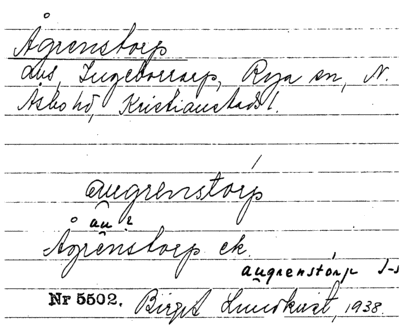 Ågrenstorp
Lhs, Ingeborrarp, Rya sn, N.
Åsbo hd, Kristianstads l.
augrenstórp
au ?
Ågrenstorp ek.
augrenstórp
Nr 5502. Birgit Lundkvist, 1938.